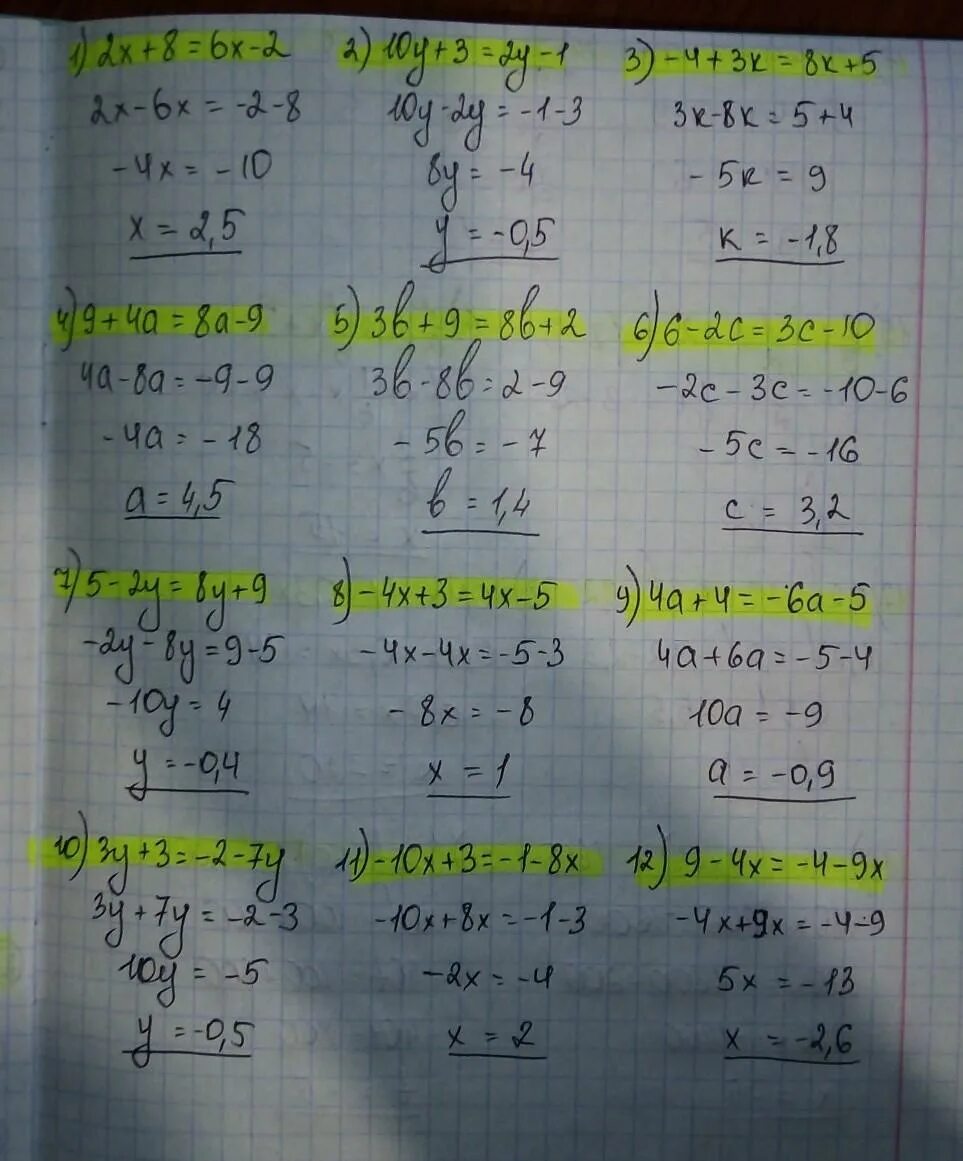 1) 2x+8=6x-2
2x-6x=-2-8
-4x=-10
x=2,5
2) 10y+3=2y-1
10y-2y=-1-3
8y=-4
y=-0,5
3) -4+3к=8к+5
3к-8к=5+4
-5к=9
к=-1,8
4) 9+4а=8а-9
4а-8а=-9-9
-4а=-18
а=4,5
5) 3в+9=8в+2
3в-8в=2-9
-5в=-7
в=1,4
6) 6-2с=3с-10
-2с-3с=-10-6
-5с=-16
с=3,2
7) 5-2y=8y+9
-2y-8y=9-5
-10y=4
y=-0,4
8) -4x+3=4x-5
-4x-4x=-5-3
-8x=-8
x=1
9) 4а+4=-6а-5
4а+6а=-5-4
10а=-9
а=-0,9
10) 3y+3=-2-7y
3y+7y=-2-3
10y=-5
y=-0,5
11) -10x+3=-1-8x
-10x+8x=-1-3
-2x=-4
x=2
12) 9-4x=-4-9x
-4x+9x=-4-9
5x=-13
x=-2,6